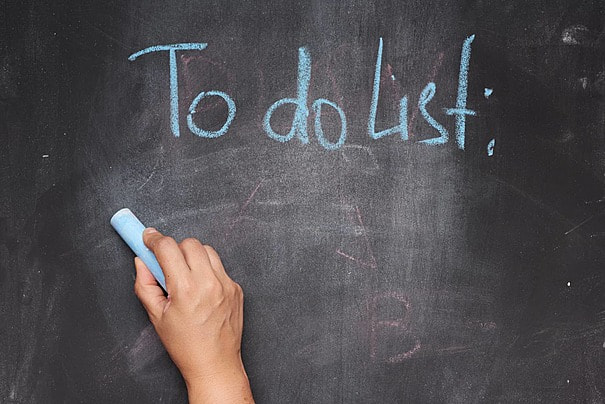 To do list:
B